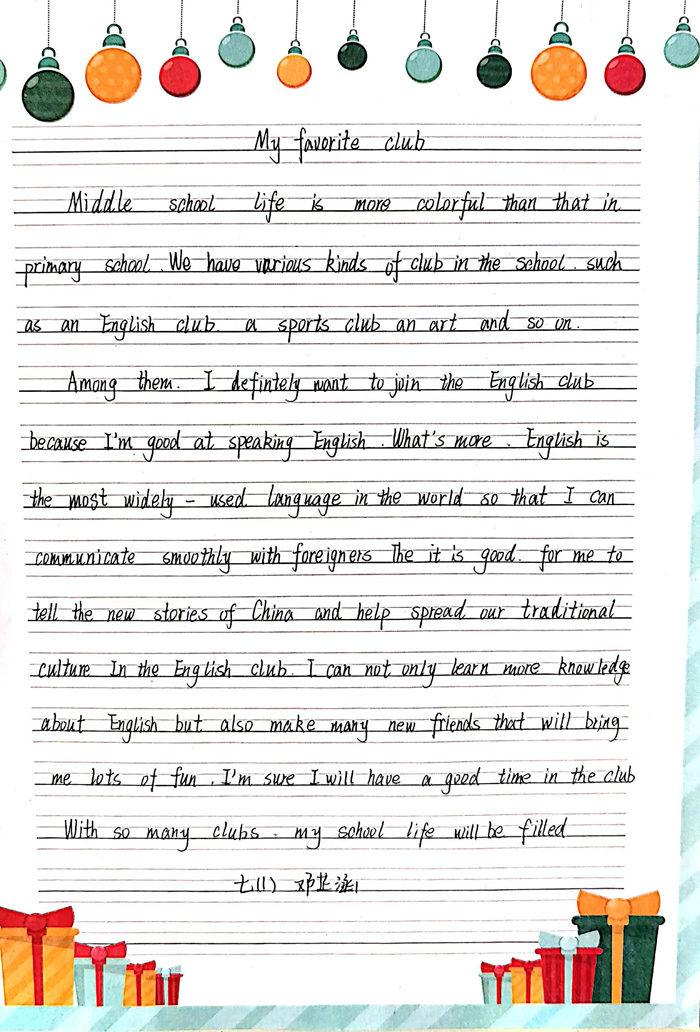 My favorite club
Middle school life is more colorful than that in
primary school. We have various kinds of club in the school. such
as an English club. a sports club an art and so on.
Among them. I defintely want to join the English club
because I'm good at speaking English. What's more. English is
the most widely - used language in the world so that I can
communicate smoothly with foreigners The it is good. for me to
tell the new stories of China and help spread our traditional
culture In the English club. I can not only learn more knowledge
about English but also make many new friends that will bring
me lots of fun. I'm sure I will have a good time in the club
With so many clubs. my school life will be filled
七(1) 邓芷泳